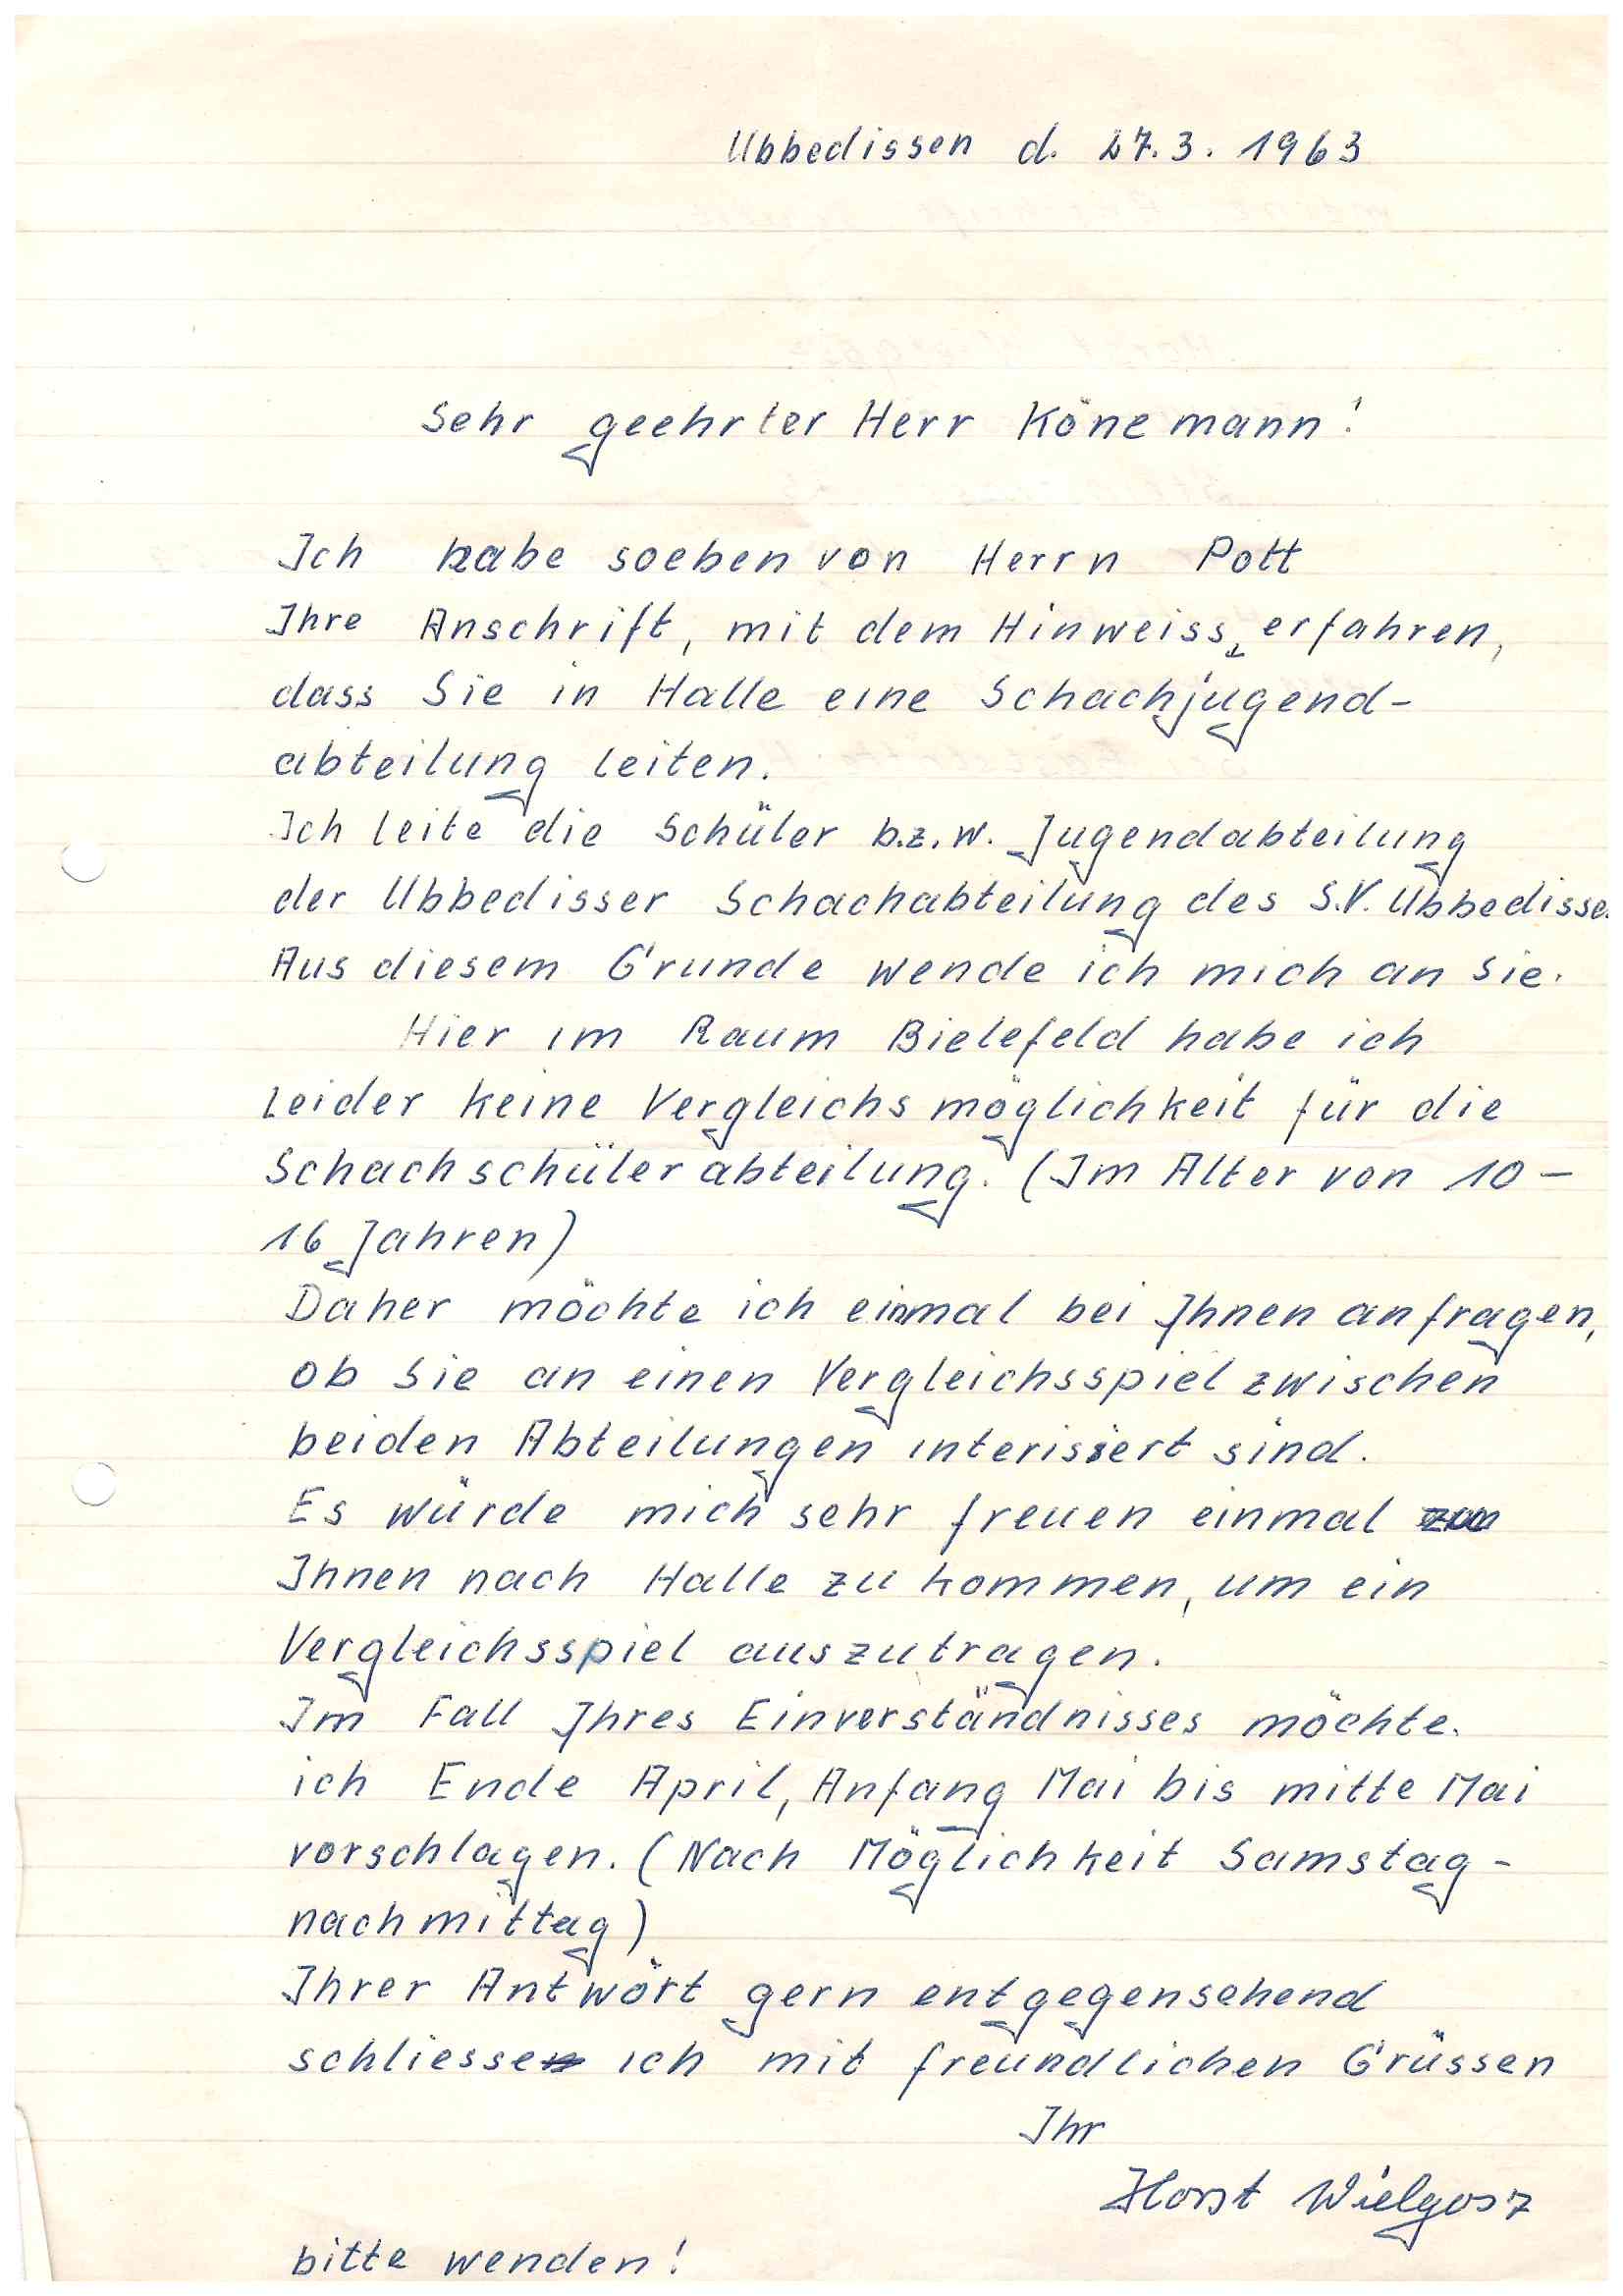 Ubbedissen d. 27.3.1963
Sehr geehrter Herr Könemann!
Ich habe soeben von Herrn Pott
Ihre Anschrift, mit dem Hinweiss, erfahren,
dass Sie in Halle eine Schachjugend-
abteilung leiten.
Ich leite die Schüler b.z.w. Jugendabteilung
der Ubbedisser Schachabteilung des S.V. Ubbedisse
Aus diesem Grunde wende ich mich an Sie.
Hier im Raum Bielefeld habe ich
leider keine Vergleichsmöglichkeit für die
Schachschülerabteilung. (Im Alter von 10-
16 Jahren)
Daher möchte ich einmal bei Ihnen anfragen,
ob Sie an einen Vergleichsspiel zwischen
beiden Abteilungen interisiert sind.
Es würde mich sehr freuen einmal zu
Ihnen nach Halle zu kommen, um ein
Vergleichsspiel auszutragen.
Im Fall Ihres Einverständnisses möchte
ich Ende April, Anfang Mai bis mitte Mai
vorschlagen. (Nach Möglichkeit Samstag-
nachmittag)
Ihrer Antwort gern entgegensehend
schliesse ich mit freundlichen Grüssen
Ihr
Horst Wielgosz
bitte wenden!